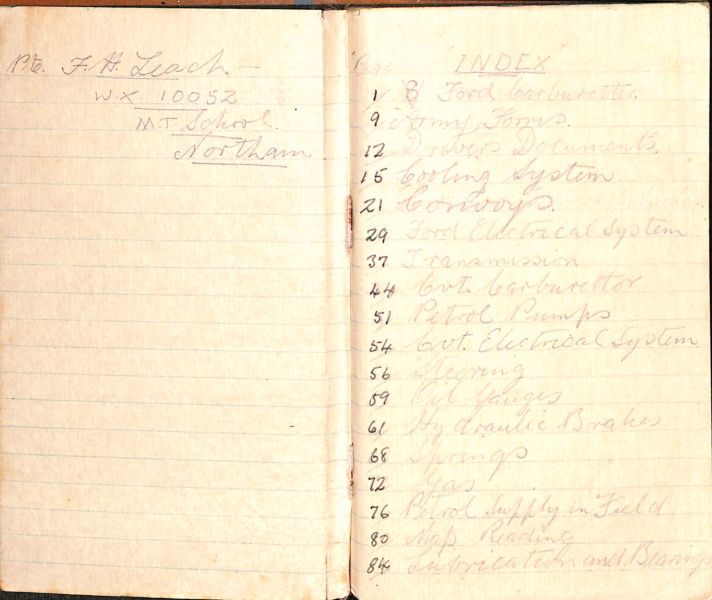 Pte. F. H. Leach —
W.X. 10052
M.T. School.
Northam
Page INDEX
1 Ford Carburettor.
9 Army Forms.
12 Drivers Documents.
15 Cooling System
21 Convoys.
29 Ford Electrical System
37 Transmission
44 Cvt. Carburettor
51 Petrol Pumps
54 Cvt. Electrical System
56 Steering
59 Oil Gauges
61 Hydraulic Brakes
68 Springs
72 Gas
76 Petrol Supply in Field
80 Map Reading
84 Lubrication and Bearings